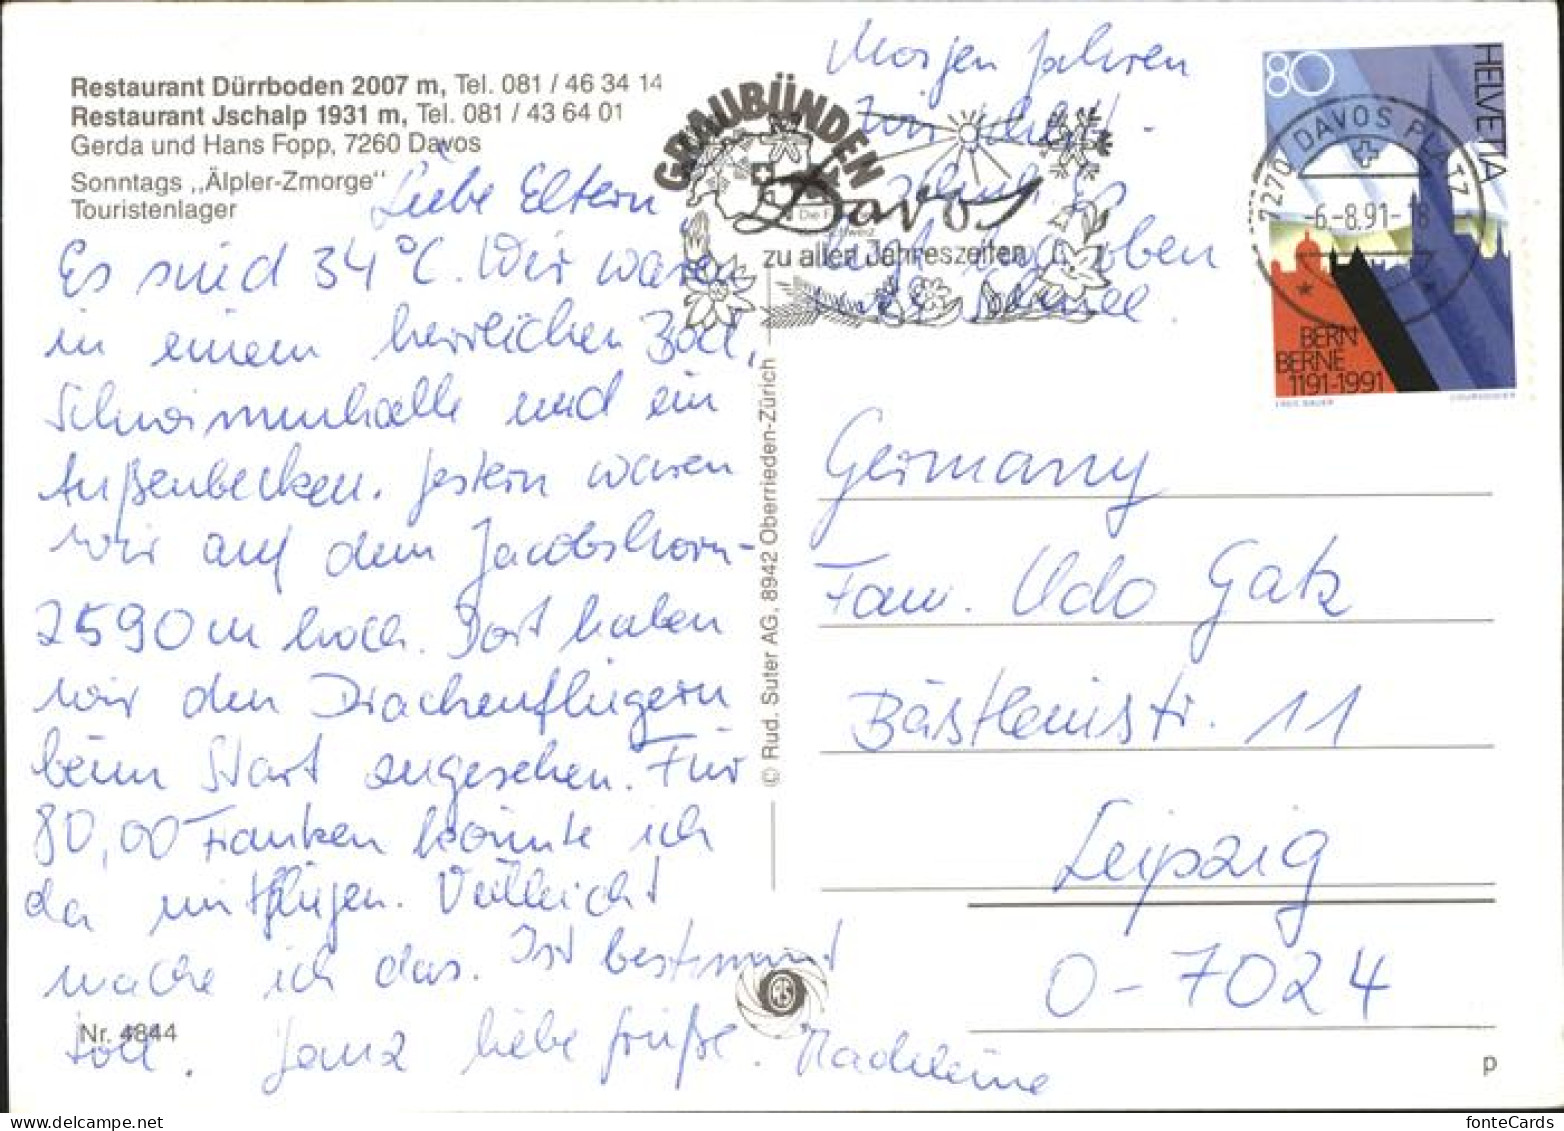 Restaurant Dürrboden 2007 m, Tel. 081 / 46 34 14
Restaurant Jschalp 1931 m, Tel. 081 / 43 64 01
Gerda und Hans Fopp, 7260 Davos
Sonntags „Älpler-Zmorge“
Touristenlager
Liebe Eltern
Es sind 34 °C. Wir waren
in einem herrlichen Bad,
Schwimmhalle und ein
Außenbecken. Gestern waren
wir auf dem Jacobshorn-
2590 m hoch. Dort haben
wir den Drachenfliegern
beim Start zugesehen. Für
80,00 Franken könnte ich
da mitfliegen. Vielleicht
mache ich das. Ist bestimmt
toll. Ganz liebe Grüße. Madeleine
Nr. 4844
Morgen fahren
wir
Es
liegt da oben
Schnee.
GRAUBÜNDEN
Davos
zu allen Jahreszeiten
© Rud. Suter AG, 8942 Oberrieden-Zürich
80
HELVETIA
7270 DAVOS PLATZ
-6.-8.91-18
BERN
BERNE
1191-1991
Germany
Fam. Udo Gatz
Bästleinstr. 11
Leipzig
O-7024
p
fonteCards